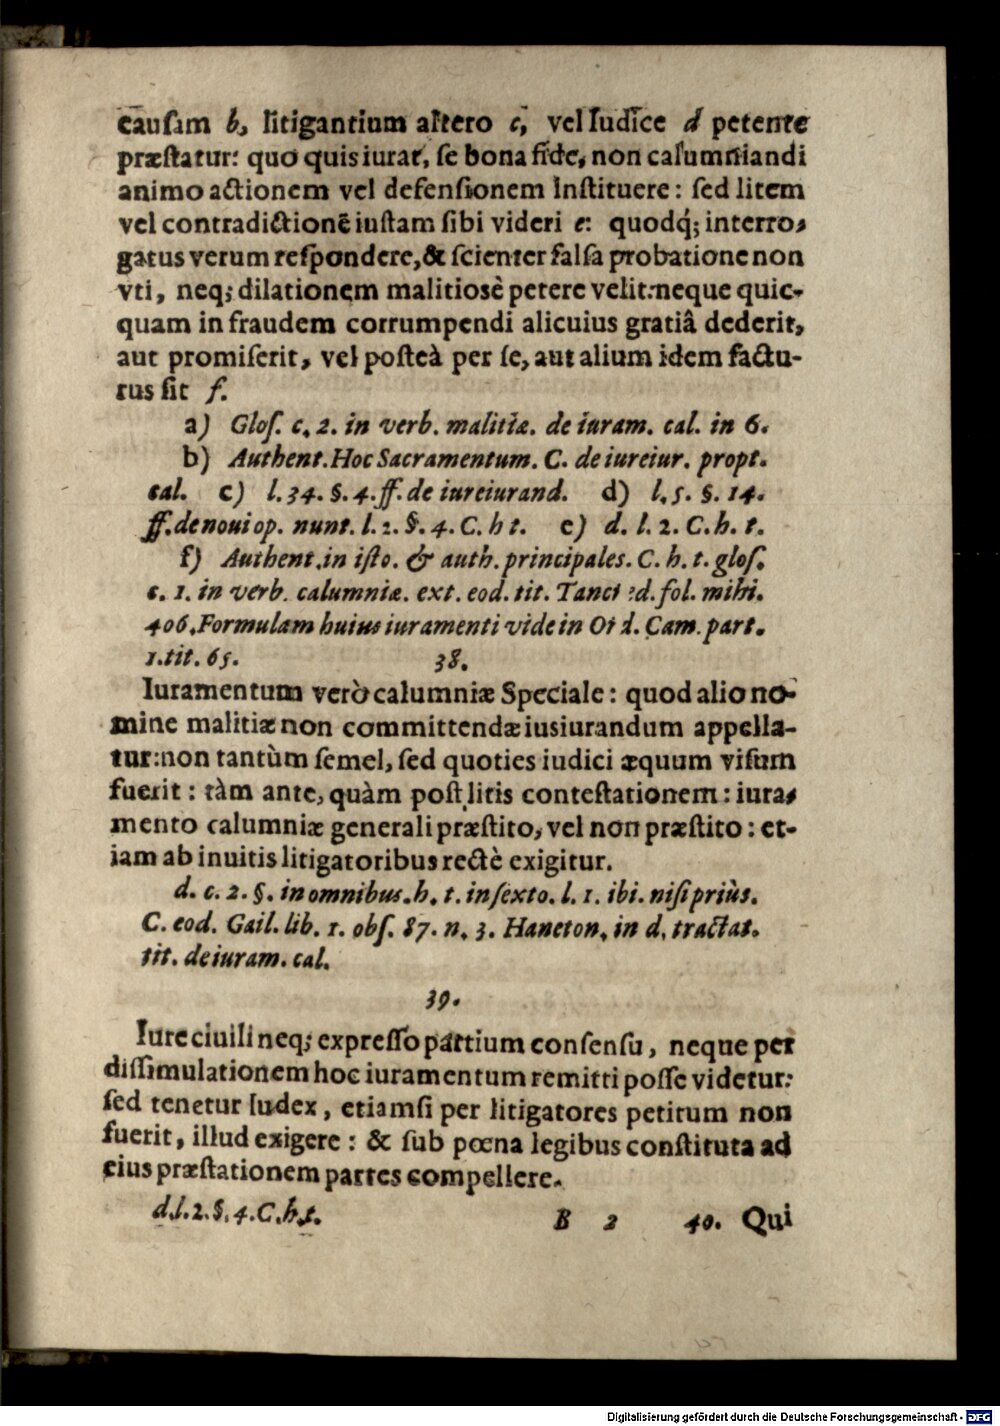 causam b, litigantium altero c, vel Iudice d petente
præſtatur: quo quis iurat, ſe bona fide, non calumniandi
animo actionem vel defenſionem inſtituere: ſed litem
vel contradictionē iuſtam ſibi videri e: quodq́; interro-
gatus verum reſpondere, & ſcienter falſa probatione non
vti, neq; dilationem malitioſè petere velit: neque quic-
quam in fraudem corrumpendi alicuius gratiâ dederit,
aut promiſerit, vel poſteà per ſe, aut alium idem factu-
rus ſit f.
a) Gloſ. c. 2. in verb. malitiæ. de iuram. cal. in 6.
b) Authent. Hoc Sacramentum. C. de iureiur. propt.
cal. c) l. 34. §. 4. ff. de iureiurand. d) l. 5. §. 14.
ff. de noui op. nunt. l. 2. §. 4. C. h t. e) d. l. 2. C. h. t.
f) Authent. in iſto. & auth. principales. C. h. t. gloſ.
c. 1. in verb. calumniæ. ext. eod. tit. Tanct ?d. fol. mihi.
406. Formulam huius iuramenti vide in Ord. Cam. part.
1. tit. 65.
38.
Iuramentum verò calumniæ Speciale: quod alio no-
mine malitiæ non committendæ iusiurandum appella-
tur: non tantùm ſemel, ſed quoties iudici æquum viſum
fuerit: tàm ante, quàm poſt litis conteſtationem: iura-
mento calumniæ generali præſtito, vel non præſtito: et-
iam ab inuitis litigatoribus rectè exigitur.
d. c. 2. §. in omnibus. h. t. in ſexto. l. 1. ibi. niſi priùs.
C. eod. Gail. lib. 1. obſ. 87. n. 3. Haneton. in d. tractat.
tit. de iuram. cal.
39.
Iure ciuili neq; expreſſo partium conſenſu, neque per
diſſimulationem hoc iuramentum remitti poſſe videtur:
ſed tenetur Iudex, etiamſi per litigatores petitum non
fuerit, illud exigere: & ſub pœna legibus conſtituta ad
eius præſtationem partes compellere.
d. l. 2. §. 4. C. h. t.
B 2 40. Qui
Digitalisierung gefördert durch die Deutsche Forschungsgemeinschaft - DFG